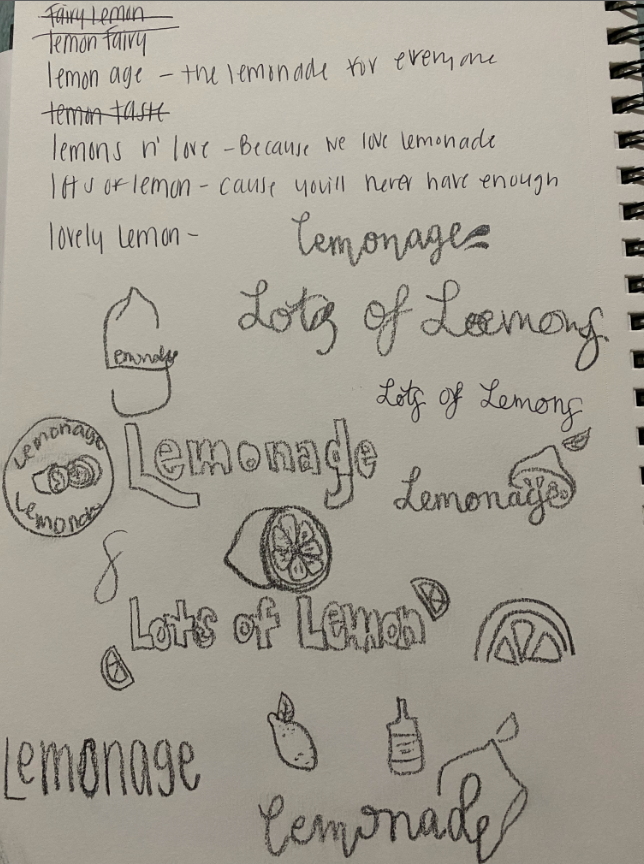 fairy lemon
lemon fairy
lemon age - the lemonade for everyone
lemon taste
lemons n' love - Because we love lemonade
lots of lemon - cause you'll never have enough
lovely lemon -
Lemonage
Lots of Leemons
Lemonage
Lots of Lemons
Lemonage
Lemonage
Lemonage
Lemonade
Lots of Lemon
Lemonage
Lemonade